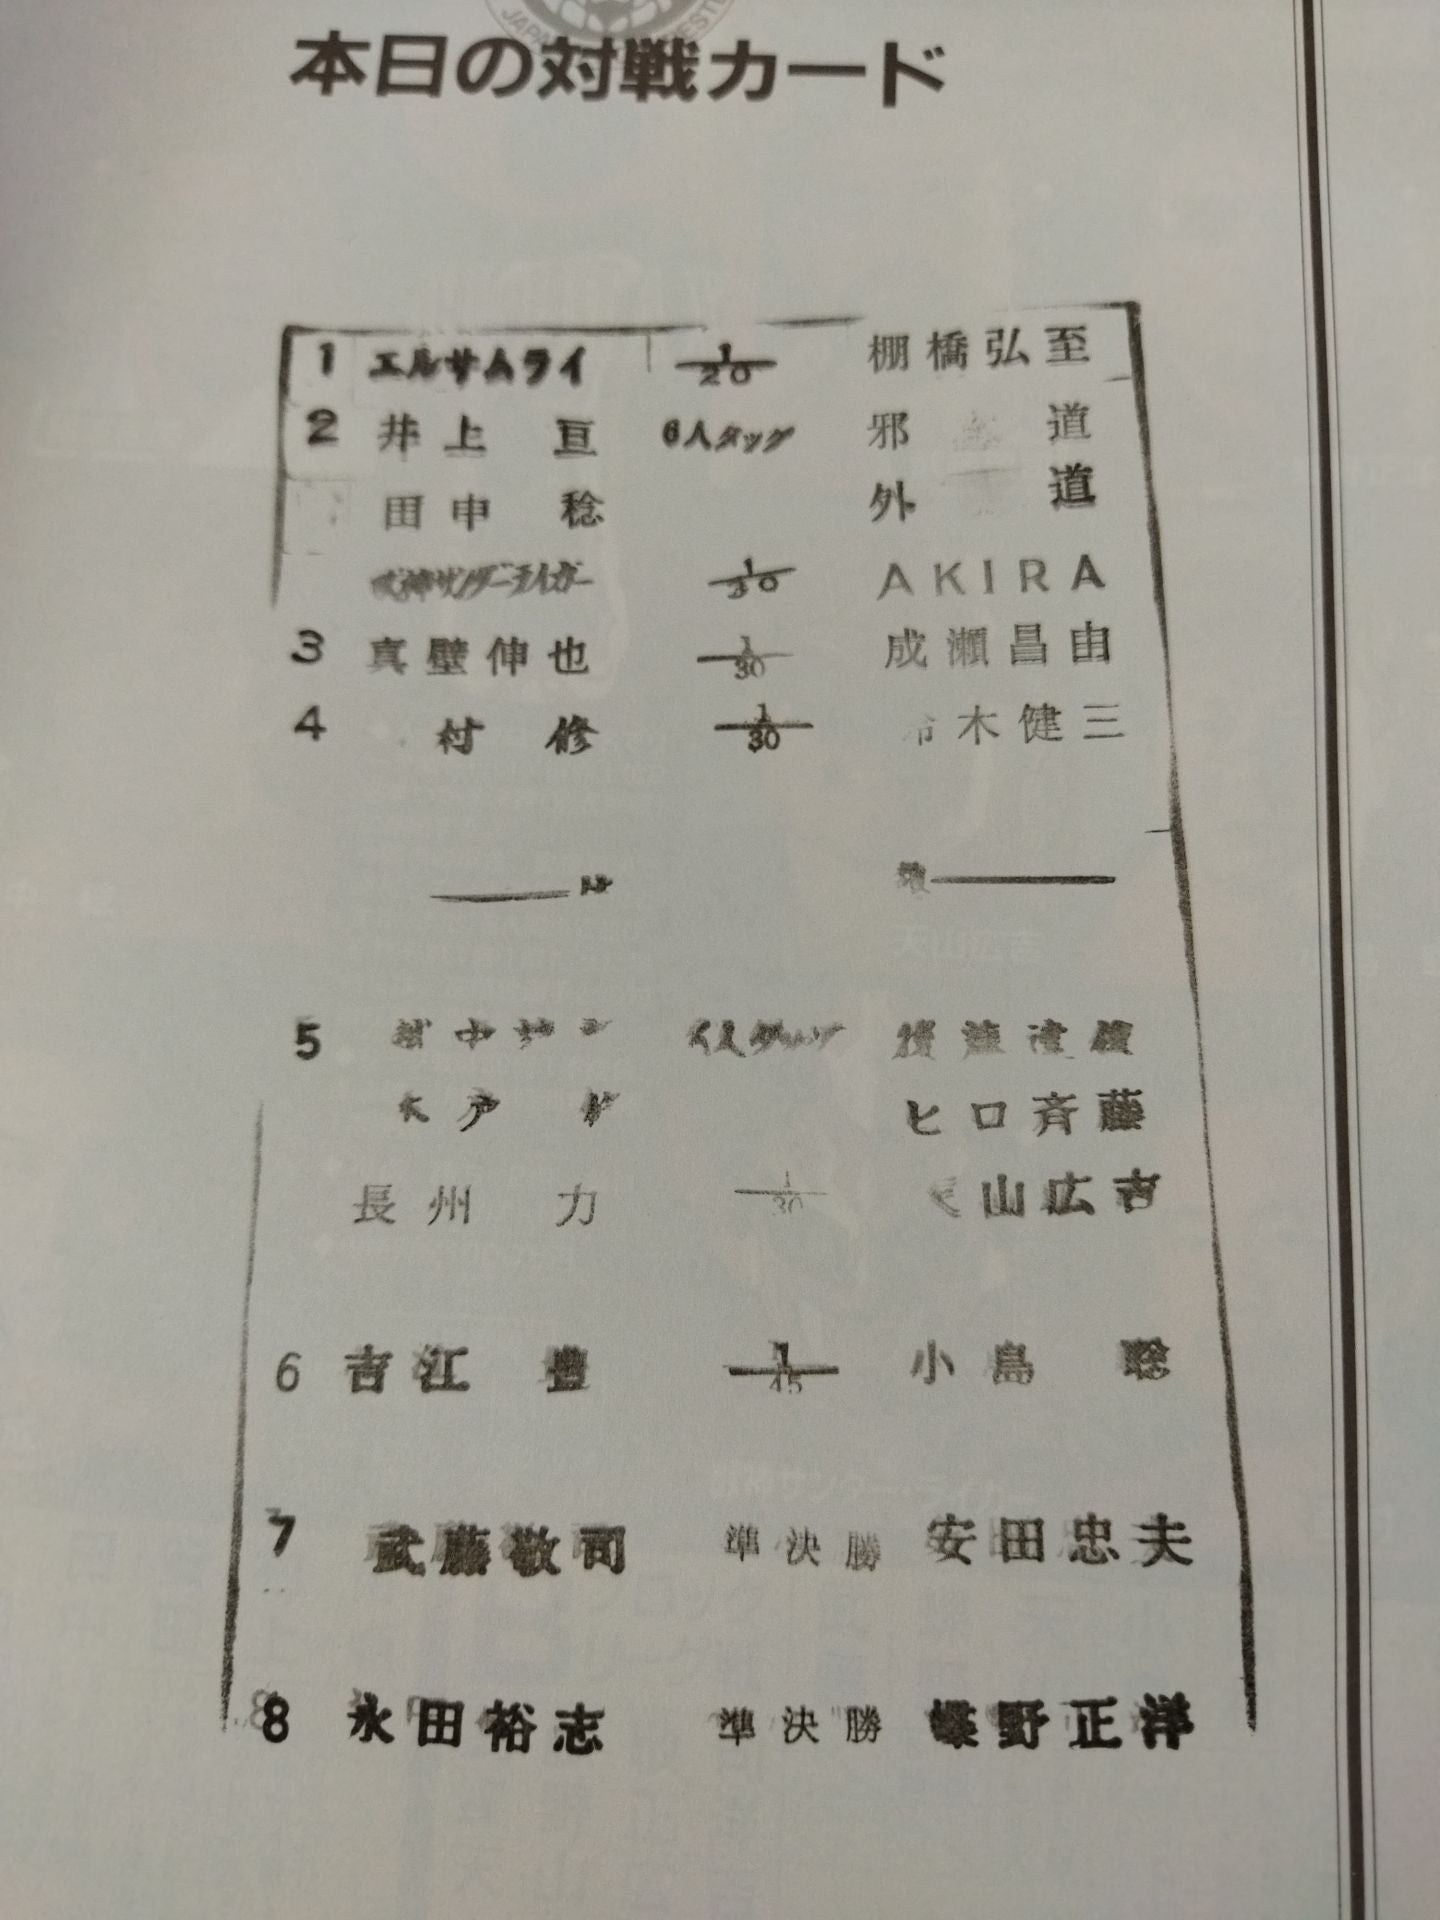 本日の対戦カード
1 エルサムライ 1/20 棚橋弘至
2 井上 亘 6人タッグ 邪 道
田中 稔 外 道
獣神サンダーライガー 1/30 AKIRA
3 真壁伸也 1/30 成瀬昌由
4 村 修 1/30 木健三
5
ヒロ斉藤
長州 力 1/30 山広吉
6 吉江 豊 1/45 小島 聡
7 武藤敬司 準決勝 安田忠夫
8 永田裕志 準決勝 蝶野正洋